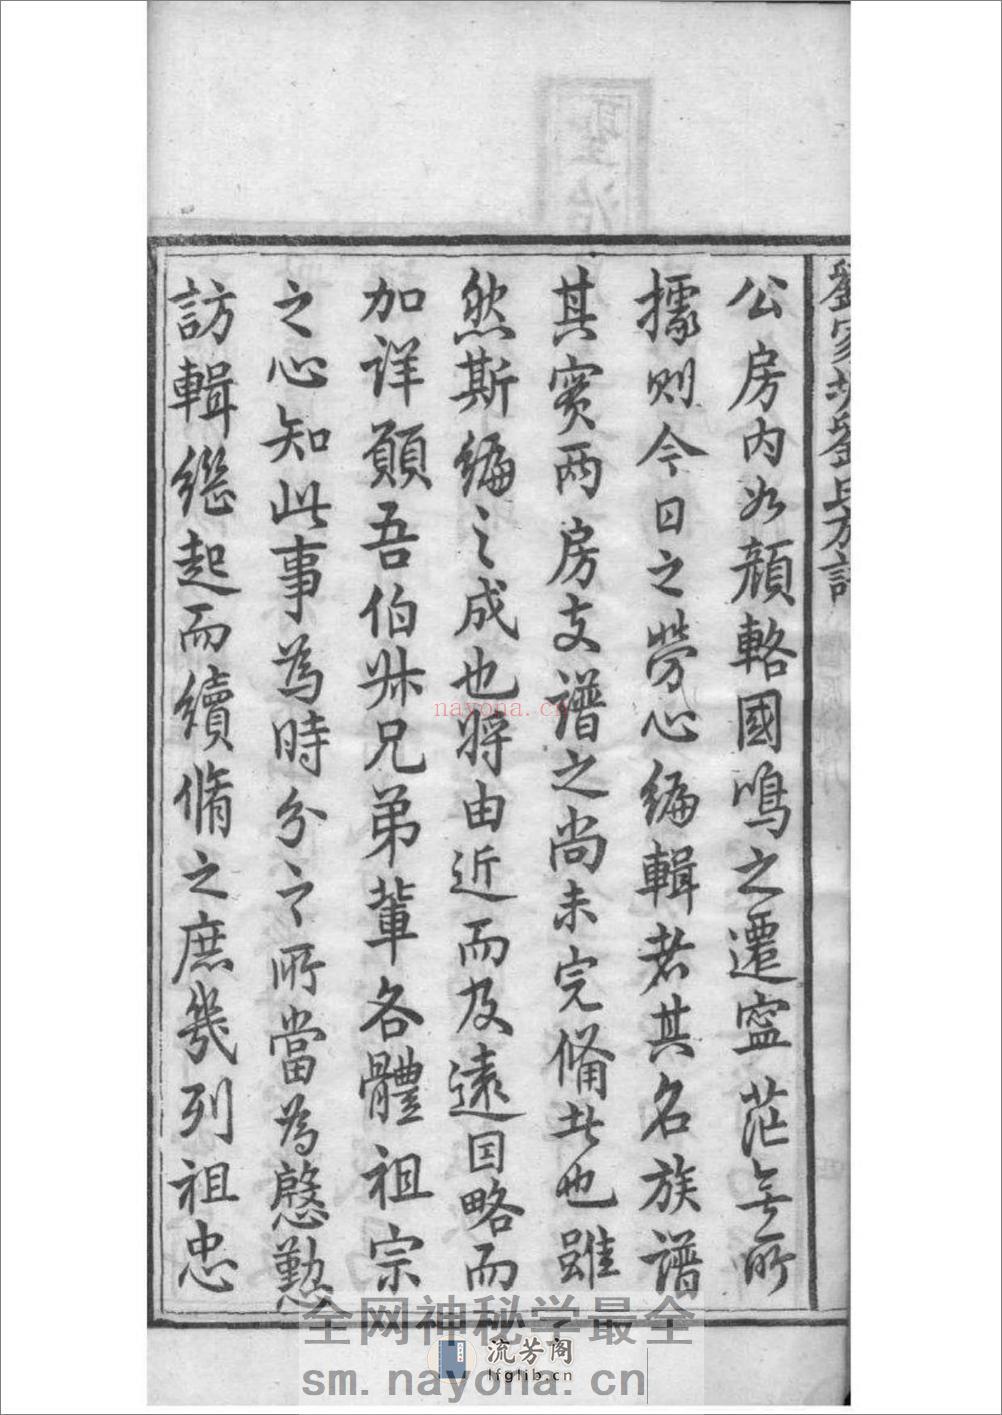 劉家劉氏
公房内如顔輅國鳴之遷寧茫無所
據則今日之勞心編輯者其名族譜
其實两房支譜之尚未完備此也雖
然斯編之成也將由近而及遠因略而
加详願吾伯叔兄弟輩各體祖宗
之心知此事為時分之所當為慇懃
訪輯繼起而續脩之庶幾列祖忠
nayona.cn
全网神秘学最全
流芳阁
lfglib.cn
sm.nayona.cn